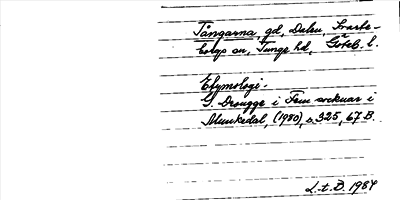 Tångarna, gd, Dalen, Svarte-
borgs sn, Tunge hd, Göteb. l.
Etymologi.
G. Drougge i Fem socknar i
Munkedal, (1980), s. 325, 67 B.
L.t.B. 1984